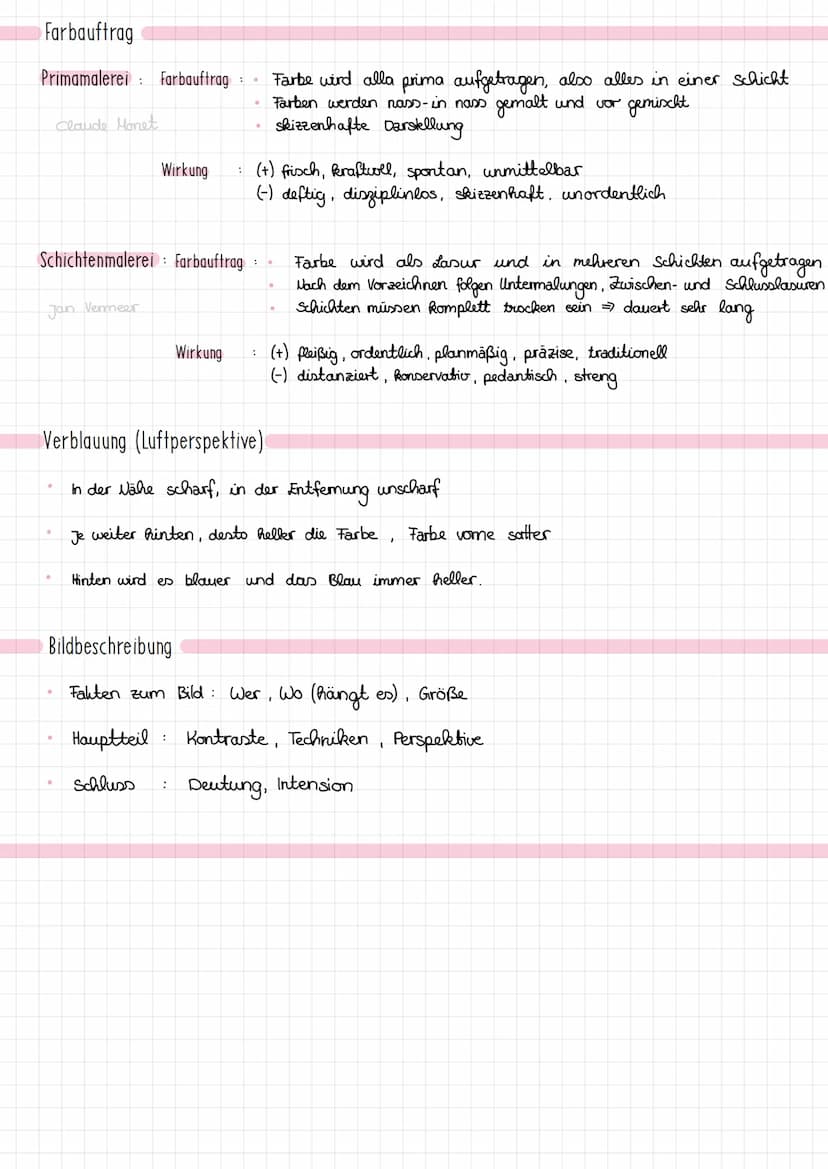 Farbauftrag
Primamalerei : Farbauftrag : • Farbe wird alla prima aufgetragen, also alles in einer Schicht
• Farben werden nass-in nass gemalt und vor gemischt
Claude Monet • skizzenhafte Darstellung
Wirkung : (+) frisch, kraftvoll, spontan, unmittelbar
(-) deftig, disziplinlos, skizzenhaft, unordentlich
Schichtenmalerei : Farbauftrag : • Farbe wird als Lasur und in mehreren Schichten aufgetragen
• Nach dem Vorzeichnen folgen Untermalungen, Zwischen- und Schlusslasuren
Jan Vermeer • Schichten müssen komplett trocken sein ⇒ dauert sehr lang
Wirkung : (+) fleißig, ordentlich, planmäßig, präzise, traditionell
(-) distanziert, konservativ, pedantisch, streng
Verblauung (Luftperspektive)
• In der Nähe scharf, in der Entfernung unscharf
• Je weiter hinten, desto heller die Farbe, Farbe vorne satter
• Hinten wird es blauer und das Blau immer heller.
Bildbeschreibung
• Fakten zum Bild : Wer, Wo (hängt es), Größe
• Hauptteil : Kontraste, Techniken, Perspektive
• Schluss : Deutung, Intension